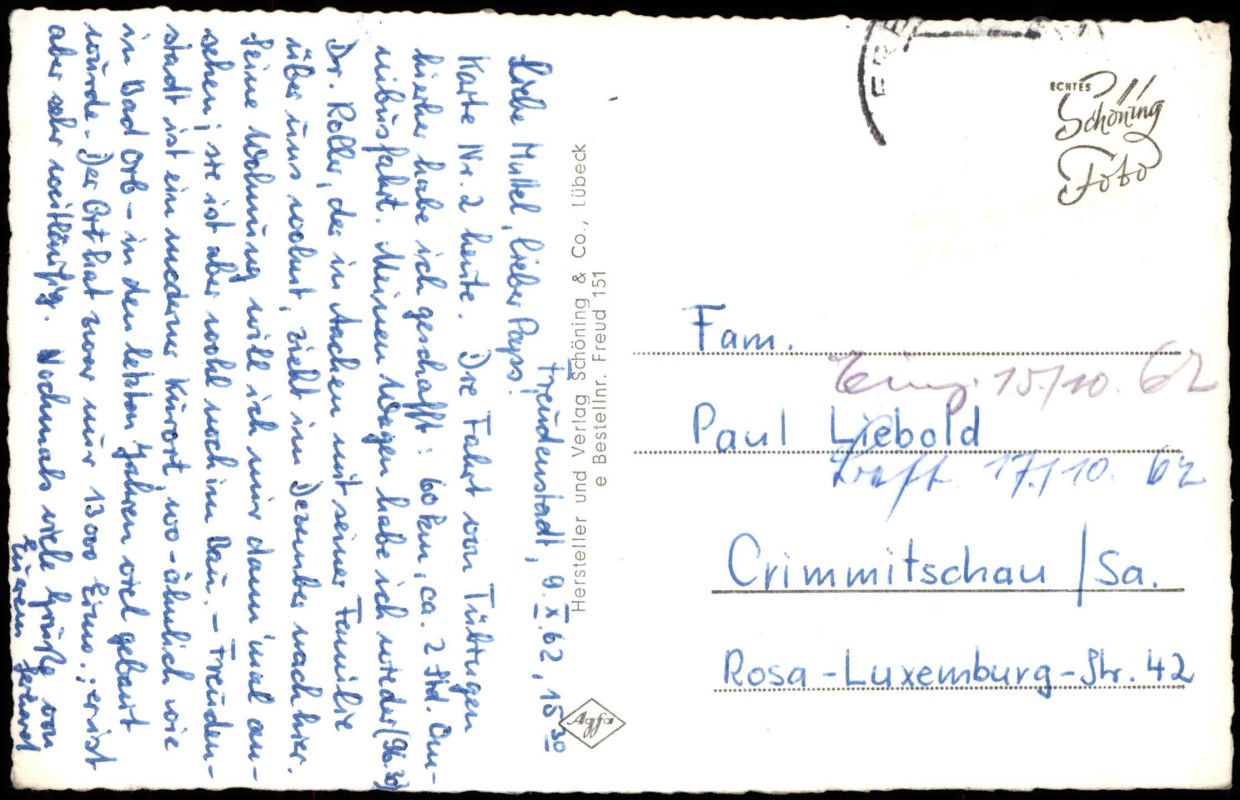 Freudenstadt, 9.X.62, 15³⁰
Liebe Muttel, lieber Paps!
Karte Nr. 2 heute. Die Fahrt von Tübingen
hierher habe ich geschafft: 60 km, ca. 2 Std. Om-
nibusfahrt. Meinen Wagen habe ich wieder
Dr. Roller, der in Aachen mit seiner Familie
über uns wohnt, zieht im Dezember nach hier.
Seine Wohnung will ich mir dann 'mal an-
sehen; sie ist aber wohl noch im Bau. - Freuden-
stadt ist ein moderner Kurort, wo - ähnlich wie
in Bad Orb - in den letzten Jahren viel gebaut
wurde. - Der Ort hat zwar nur 13000 Einw.; er ist
aber sehr weitläufig. Nochmals viele Grüße von
Eurem
Hersteller und Verlag Schöning & Co., Lübeck
e Bestellnr. Freud 151
Agfa
ECHTES
Schöning
Foto
Fam.
15./10. 62
Paul Liebold
17./10. 62
Crimmitschau /Sa.
Rosa-Luxemburg-Str. 42